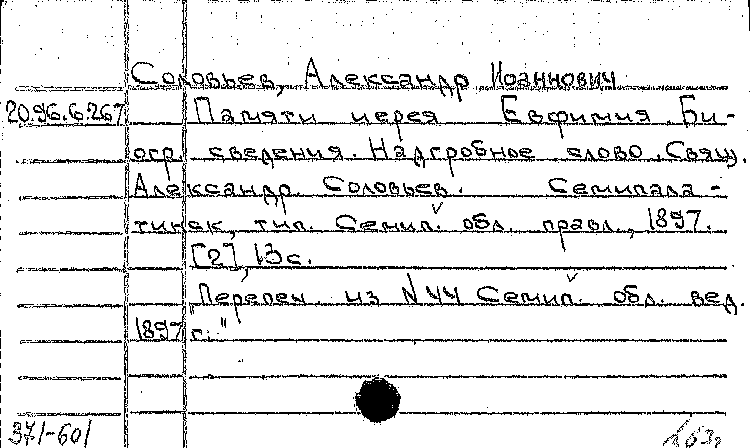 Соловьев, Александр Иоаннович
20.96.6.267 Памяти иерея Евфимия. Би-
огр. сведения. Надгробное слово. Свящ.
Александр Соловьев. Семипала-
тинск, тип. Семип. обл. правл., 1897.
[2], 13 с.
"Перепеч. из N 44 Семип. обл. вед.
1897 г."
371-601